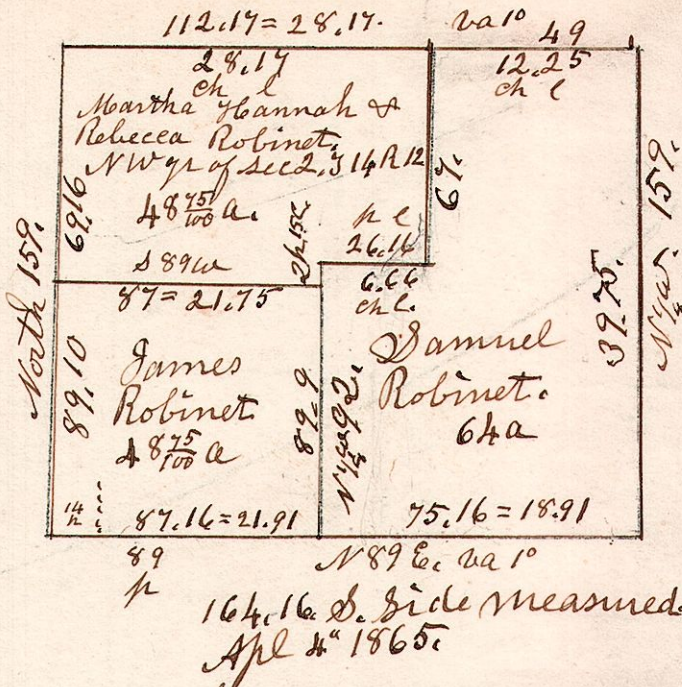 112.17 = 28.17. va 1° 49
28.17 12.25
ch l ch l
Martha Hannah &
Rebecca Robinet.
NW qr of sec 2, T 14 R 12
48 75/100 a.
69.16
67.
2p. 15l.
p l
26.16
S 89 W
6.66
ch l.
87 = 21.75
North 159.
39.75.
159.
James
Robinet
48 75/100 a
89.10
89.9
92.
Samuel
Robinet.
64 a
14
87.16 = 21.91
75.16 = 18.91
89
p
N 89 E. va 1°
164.16. S. Side measured.
Apl 4" 1865.